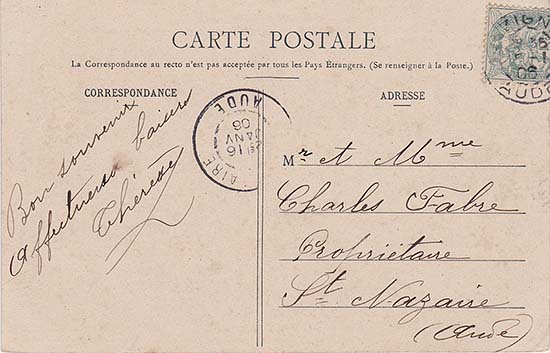 CARTE POSTALE
La Correspondance au recto n'est pas acceptée par tous les Pays Étrangers. (Se renseigner à la Poste.)
CORRESPONDANCE
ADRESSE
Bon souvenir
Affectueux baisers
Thérèse
Mr et Mme
Charles Fabre
Propriétaire
St. Nazaire
(Aude)
AIRE
AUDE
16
JANV
06
VIGN
06
AUDE